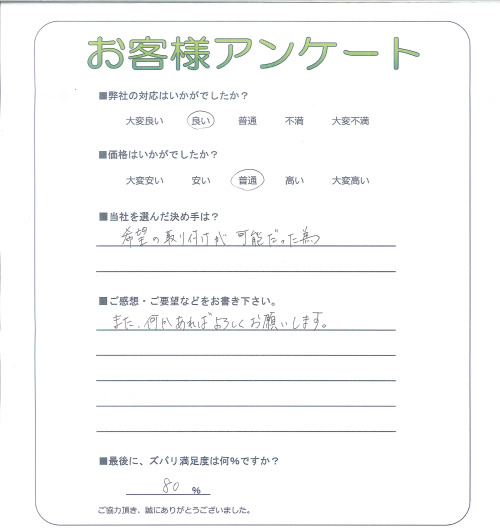 お客様アンケート
■弊社の対応はいかがでしたか？
大変良い 良い 普通 不満 大変不満
■価格はいかがでしたか？
大変安い 安い 普通 高い 大変高い
■当社を選んだ決め手は？
希望の取り付けが可能だった為
■ご感想・ご要望などをお書き下さい。
また、何かあればよろしくお願いします。
■最後に、ズバリ満足度は何%ですか？
80 %
ご協力頂き、誠にありがとうございました。